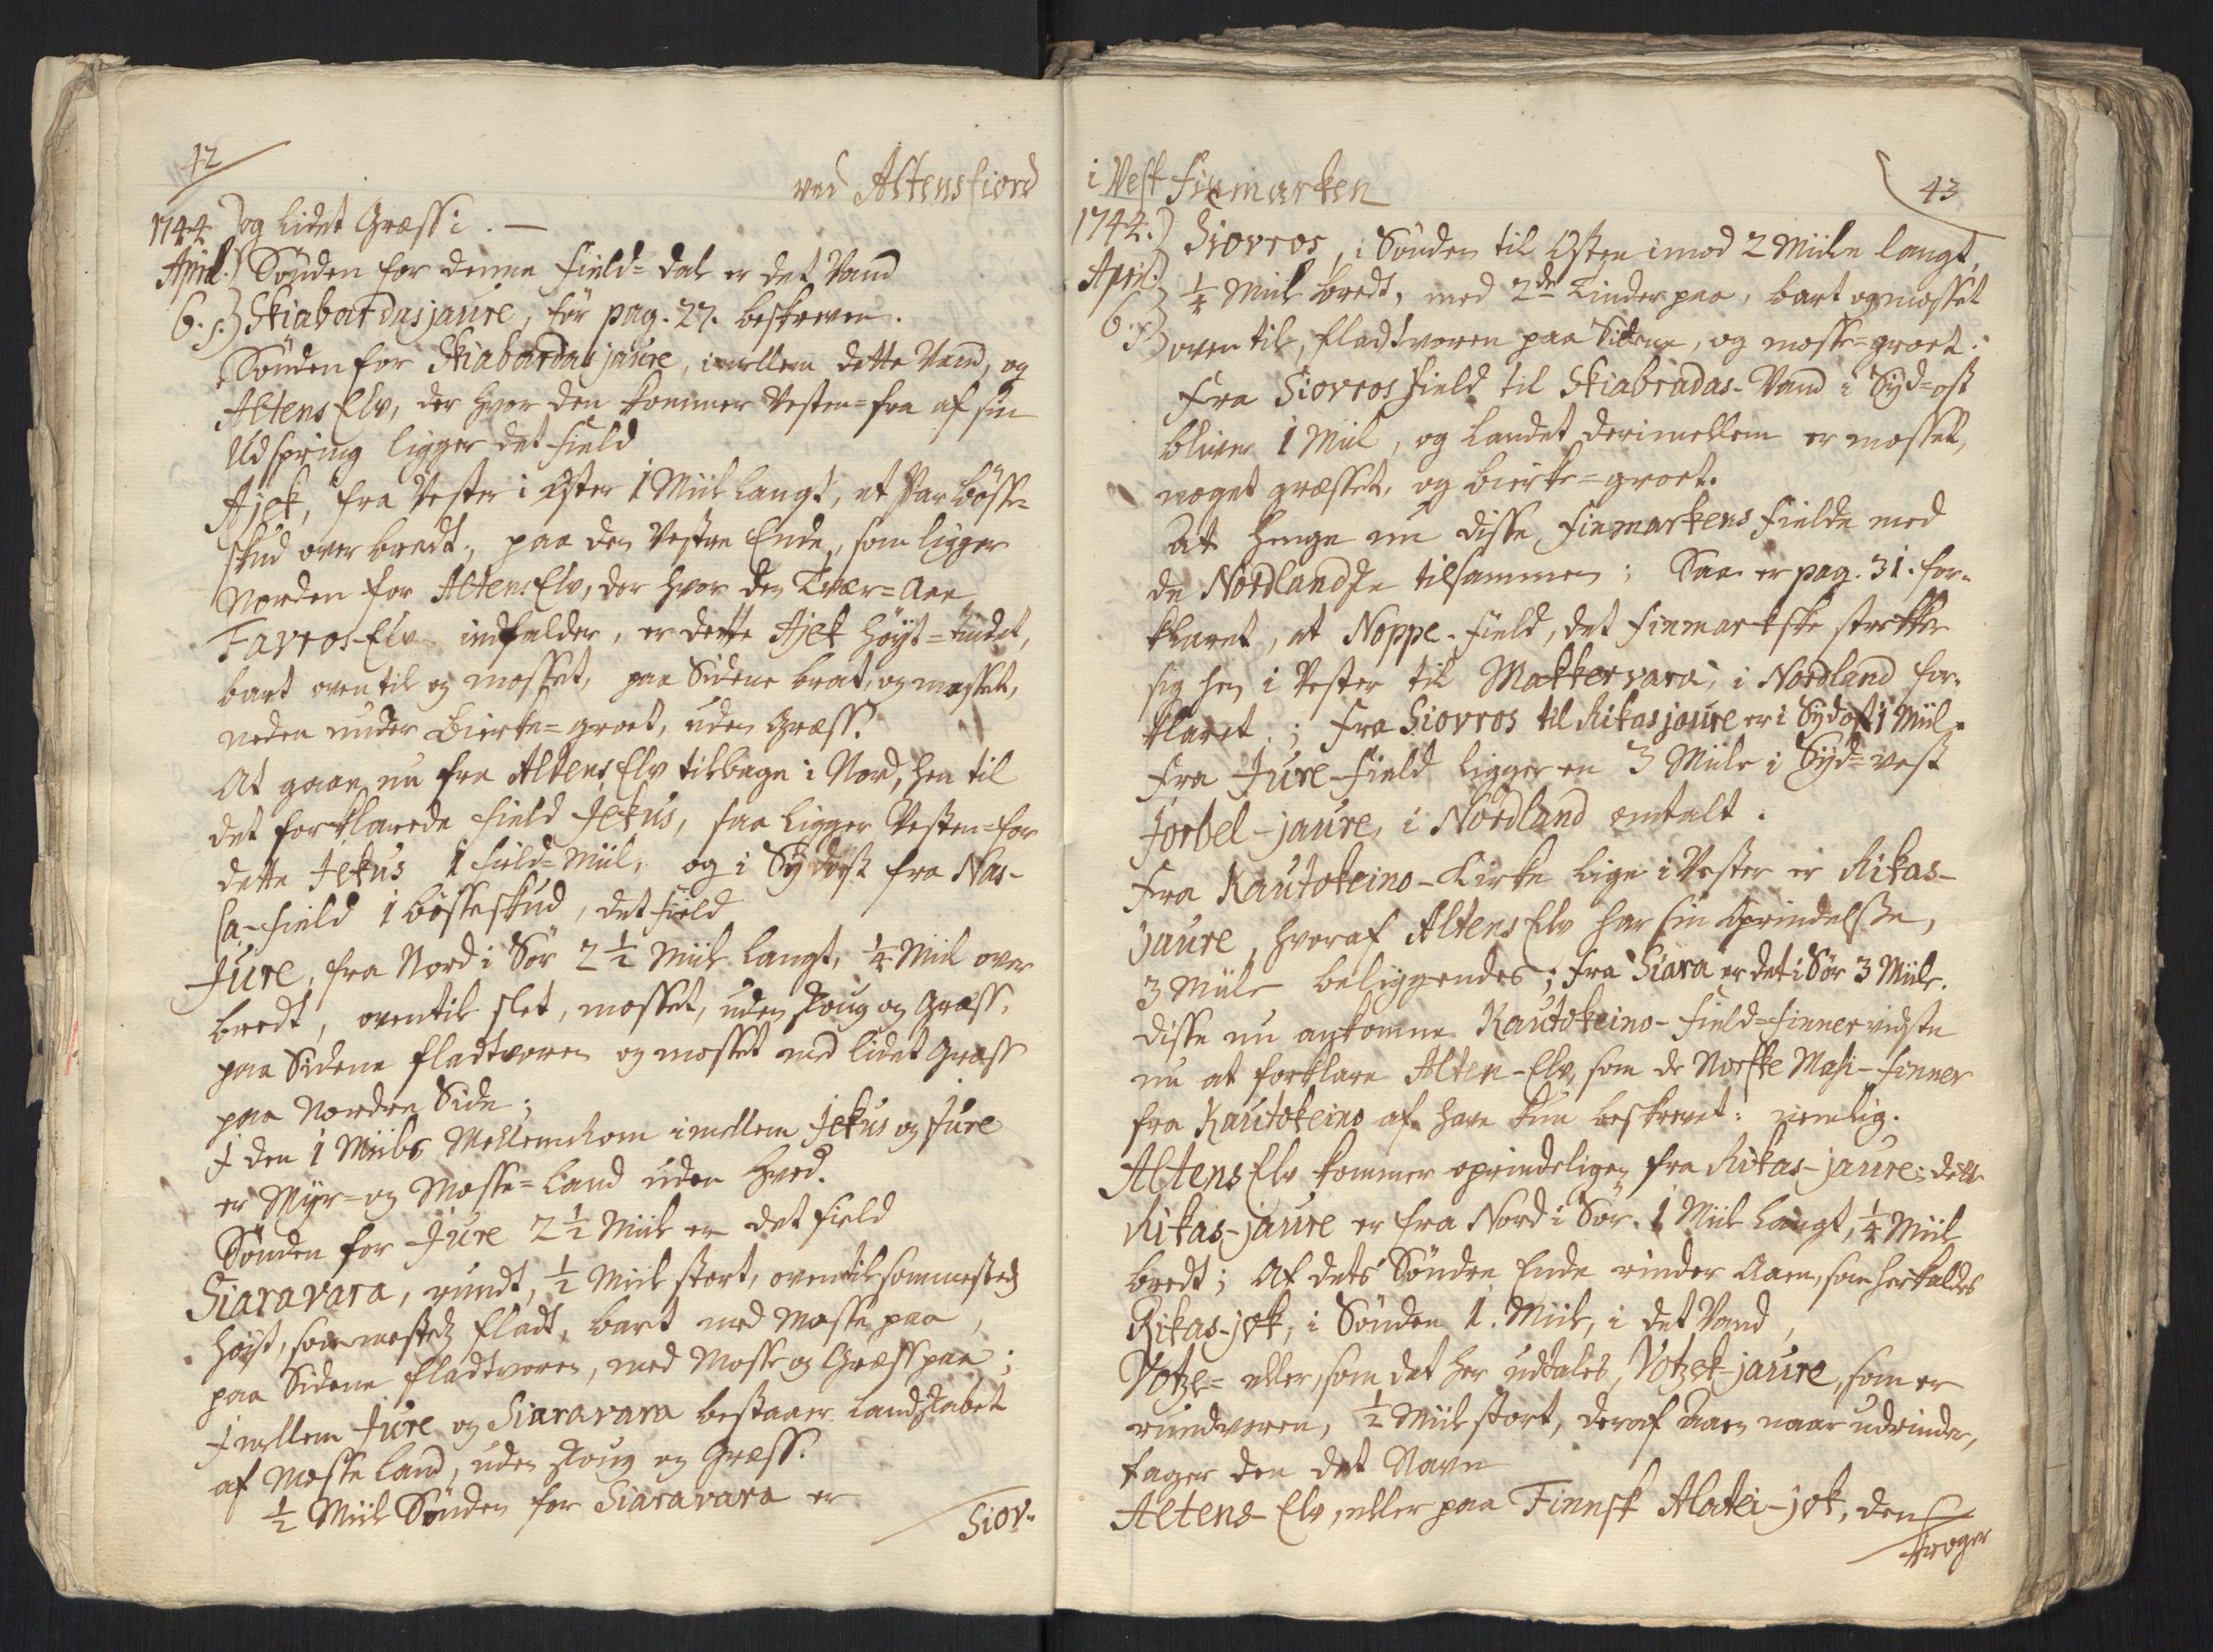 42
ved Altensfiord
1744. og lidet Græss i. —
April. Sønden for denne Field-dal er det Vand
6. s. Skiabardasjaure, før pag. 27. beskreven.
Sønden for Skiabardasjaure, imellem dette Vand, og
Altens Elv, der hvor den kommer Vesten-fra af sin
Udspring ligger det Field
Ajek, fra Vester i Øster 1 Miil langt, et Par bösse-
skud over bredt, paa den Vestre Ende, som ligger
Norden for Altens Elv, der hvor den Tvær-Aae
Favros-Elv indfalder, er dette Ajek høyt-tindet,
bart oven til og mosset, paa Sidene brat, og mosset,
neden under Birke-groet, uden Græss.
At gaae nu fra Altens Elv tilbage i Nord, hen til
det forklarede Field Jekus, saa ligger Vesten-for
dette Jekus 1 Field-Miil, og i Sydost fra Nas-
sa-Field 1 bösseskud, det Field
Jure, fra Nord i Sør 2 1/2 Miil langt, 1/4 Miil over
bredt, oventil slet, mosset, uden Skoug og Græss,
paa Sidene fladtvoren og mosset med lidet Græss
paa Nordre Side;
I den 1 Miils Mellemrom imellem Jekus og Jure
er Myr- og Mosse-Land uden Hved.
Sønden for Jure 2 1/2 Miil er det Field
Siaravara, rundt, 1/2 Miil stort, oventil sommesteds
høyt, sommesteds fladt, bart med Mosse paa,
paa Sidene fladtvoren, med Mosse og Græss paa;
Imellem Jure og Siaravara bestaaer Landskabet
af Mosse Land, uden Skoug og Græss.
1/2 Miil Sønden for Siaravara er
Siov-
i Vest Finmarken
43
1744. Siovros, i Sønden til Østen imod 2 Miile langt,
April. 1/4 Miil bredt, med 2de Tinder paa, bart og mosset
6. s. oven til, fladtvoren paa Sidene, og mosse-groet.
Fra Siovros Field til Skiabradas-Vand i Syd-ost
bliver 1 Miil, og Landet derimellem er mosset,
noget græsset, og birke-groet.
At henge nu disse Finmarkens Fielde med
de Nordlandske tilsammen; Saa er pag. 31. for-
klaret, at Noppe-Field, det Finmarkske strekker
sig hen i Vester til Makkervara, i Nordland for-
klaret.; Fra Siovros til Rikasjaure er i Sydost 1 Miil.
Fra Jure-Field ligger en 3 Miile i Syd-vest
Jorbel-jaure, i Nordland omtalt.
Fra Kautokeino-Kirke lige i Vester er Rikas-
jaure, hvoraf Altens Elv har sin Oprindelse,
3 Miile beliggendes; fra Siara er det i Sør 3 Miile.
Disse nu ankomne Kautokeino-Field-Finner vidste
nu at forklare Alten-Elv, som de Norske Masi-Finner
fra Kautokeino af have kun beskrevet: nemlig.
Altens Elv kommer oprindeligen fra Rikas-jaure; dette
Rikas-jaure er fra Nord i Sør. 1 Miil langt, 1/4 Miil
bredt; Af dets Søndre Ende rinder Aaen, som her kaldes
Rikas-jok, i Sønden 1. Miil, i det Vand,
Votze- eller, som det her udtales, Votzek-jaure, som er
rundvoren, 1/2 Miil stort, deraf Aaen naar udrinder,
tager den det Navn
Altens-Elv, eller paa Finnsk Alatei-jok, den
kroger